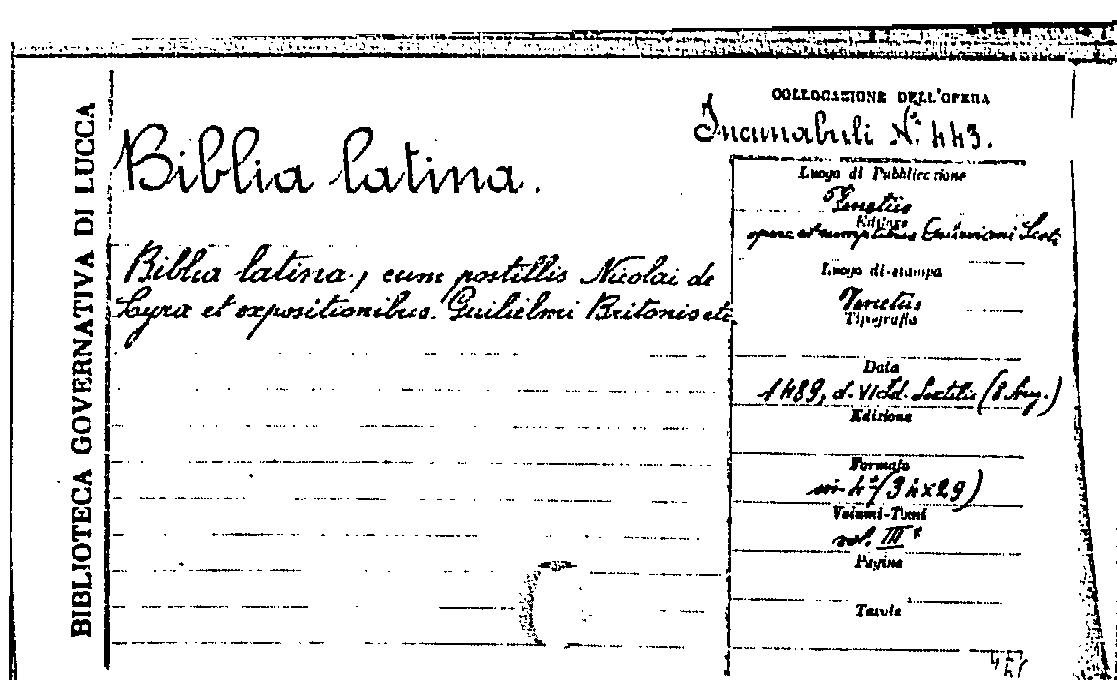 BIBLIOTECA GOVERNATIVA DI LUCCA
Biblia latina.
Biblia latina, cum postillis Nicolai de
Lyra et expositionibus Guilielmi Britonis etc.
COLLOCAZIONE DELL'OPERA
Incunabuli N.° 443.
Luogo di Pubblicazione
Venetiis
Editore
opera et sumptibus Octaviani Scoti
Luogo di stampa
Venetiis
Tipografia
Data
1489, d. VI Id. Sextilis (8 Aug.)
Edizione
Formato
in 4° (34x29)
Volumi-Tomi
vol. III°
Pagine
Tavole